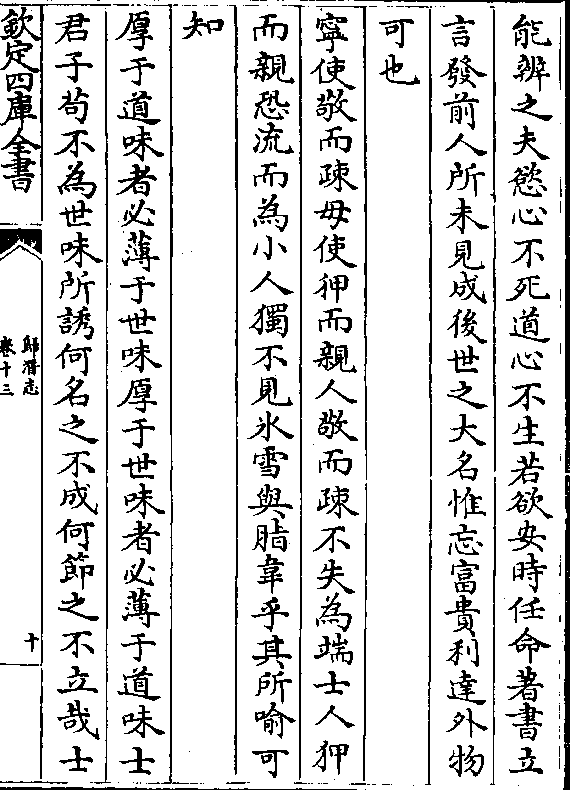 能辨之夫慾心不死道心不生若欲安時任命著書立
言發前人所未見成後世之大名惟忘富貴利達外物
可也
寧使敬而疎毋使狎而親人敬而疎不失為端士人狎
而親恐流而為小人獨不見氷雪與脂韋乎其所喻可
知
厚于道味者必薄于世味厚于世味者必薄于道味士
君子苟不為世味所誘何名之不成何節之不立哉士
欽定四庫全書
歸潛志
卷十三
十